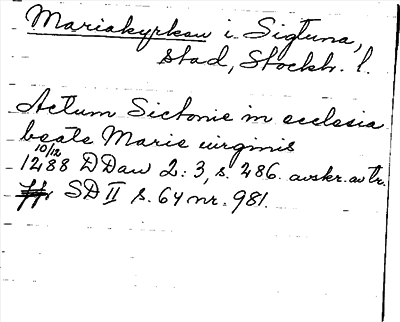 Mariakyrkan i Sigtuna,
stad, Stockh. l.
Actum Sictonie in ecclesia
beate Marie uirginis
10/12
1288 DDan 2:3, s. 286. avskr. av tr.
SD II s. 64 nr. 981.